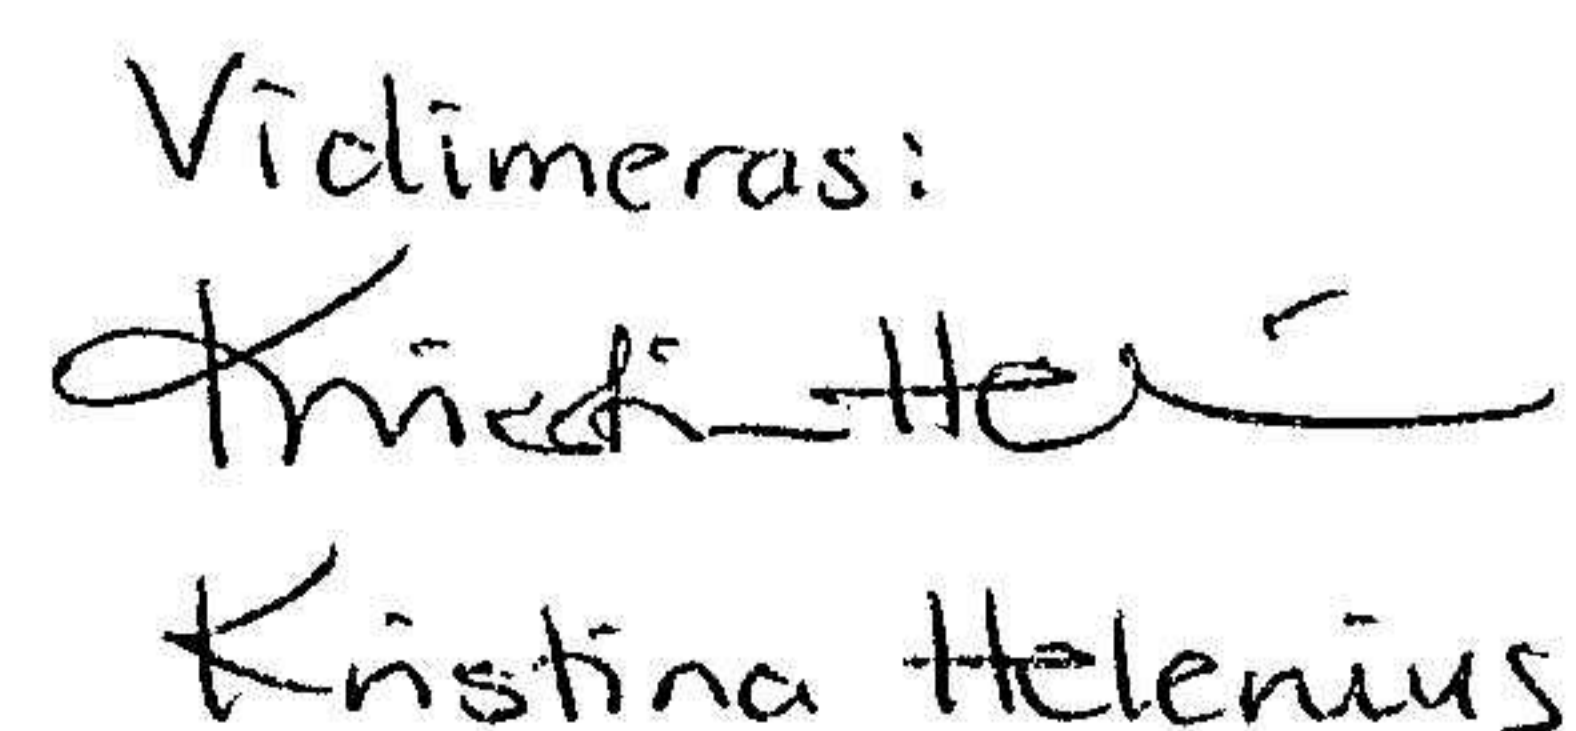 Vidimeras:
Kristin Hel
Kristina Helenius